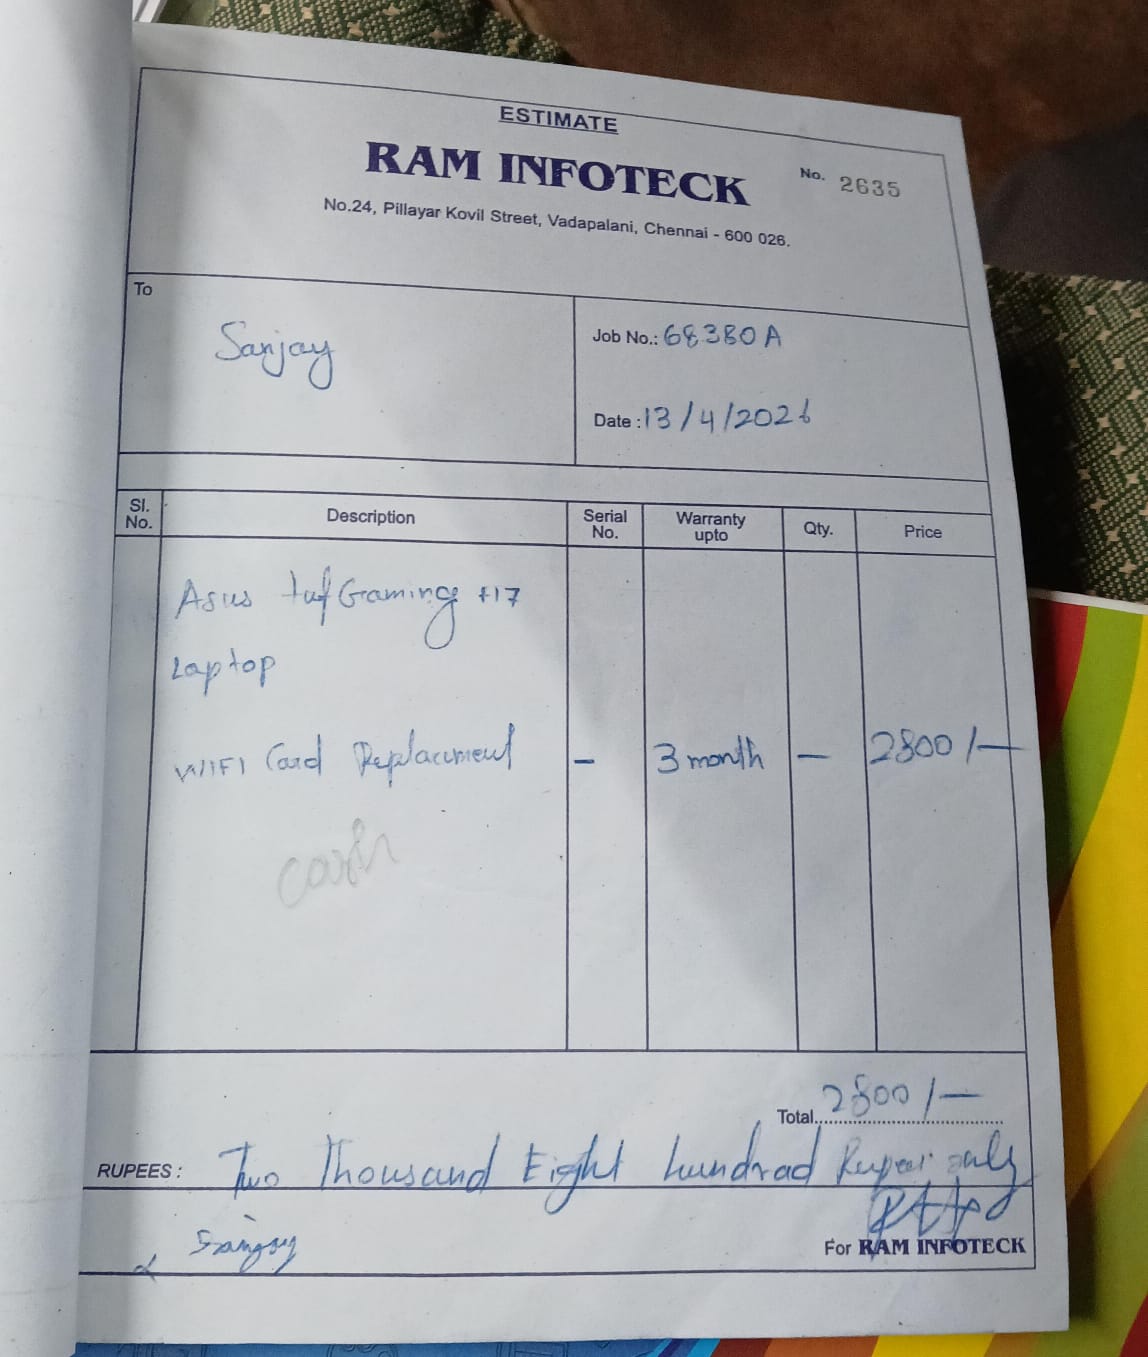 ESTIMATE
RAM INFOTECK
No. 2635
No.24, Pillayar Kovil Street, Vadapalani, Chennai - 600 026.
To
Sanjay
Job No.: 68380A
Date : 13/4/2026
Sl. No. Description Serial No. Warranty upto Qty. Price
Asus tuf Gaming f17
Laptop
WIFI Card Replacement - 3 month - 2800/-
cash
Total 2800/-
RUPEES : Two Thousand Eight hundrad Rupees only
For RAM INFOTECK